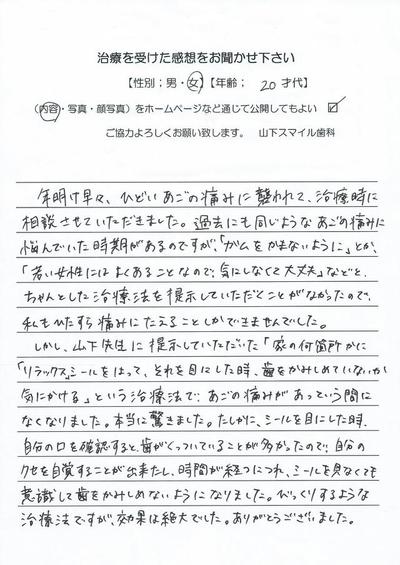 治療を受けた感想をお聞かせ下さい
【性別；男・女】【年齢； 20才代】
（内容・写真・顔写真）をホームページなど通じて公開してもよい ☑
ご協力よろしくお願い致します。 山下スマイル歯科
年明け早々、ひどいあごの痛みに襲われて、治療時に
相談させていただきました。過去にも同じようなあごの痛みに
悩んでいた時期があるのですが、「ガムをかまないように」とか、
「若い女性にはよくあることなので、気にしなくて大丈夫」などと、
ちゃんとした治療法を提示していただくことがなかったので、
私もひたすら痛みにたえることしかできませんでした。
しかし、山下先生に提示していただいた「家の何箇所かに
「リラックス」シールをはって、それを目にした時、歯をかみしめていないか
気にかける」という治療法で、あごの痛みがあっという間に
なくなりました。本当に驚きました。たしかに、シールを目にした時、
自分の口を確認すると、歯がくっついていることが多かったので、自分の
クセを自覚することが出来たし、時間が経つにつれ、シールを見なくても
意識して歯をかみしめないようになりました。びっくりするような
治療法ですが、効果は絶大でした。ありがとうございました。